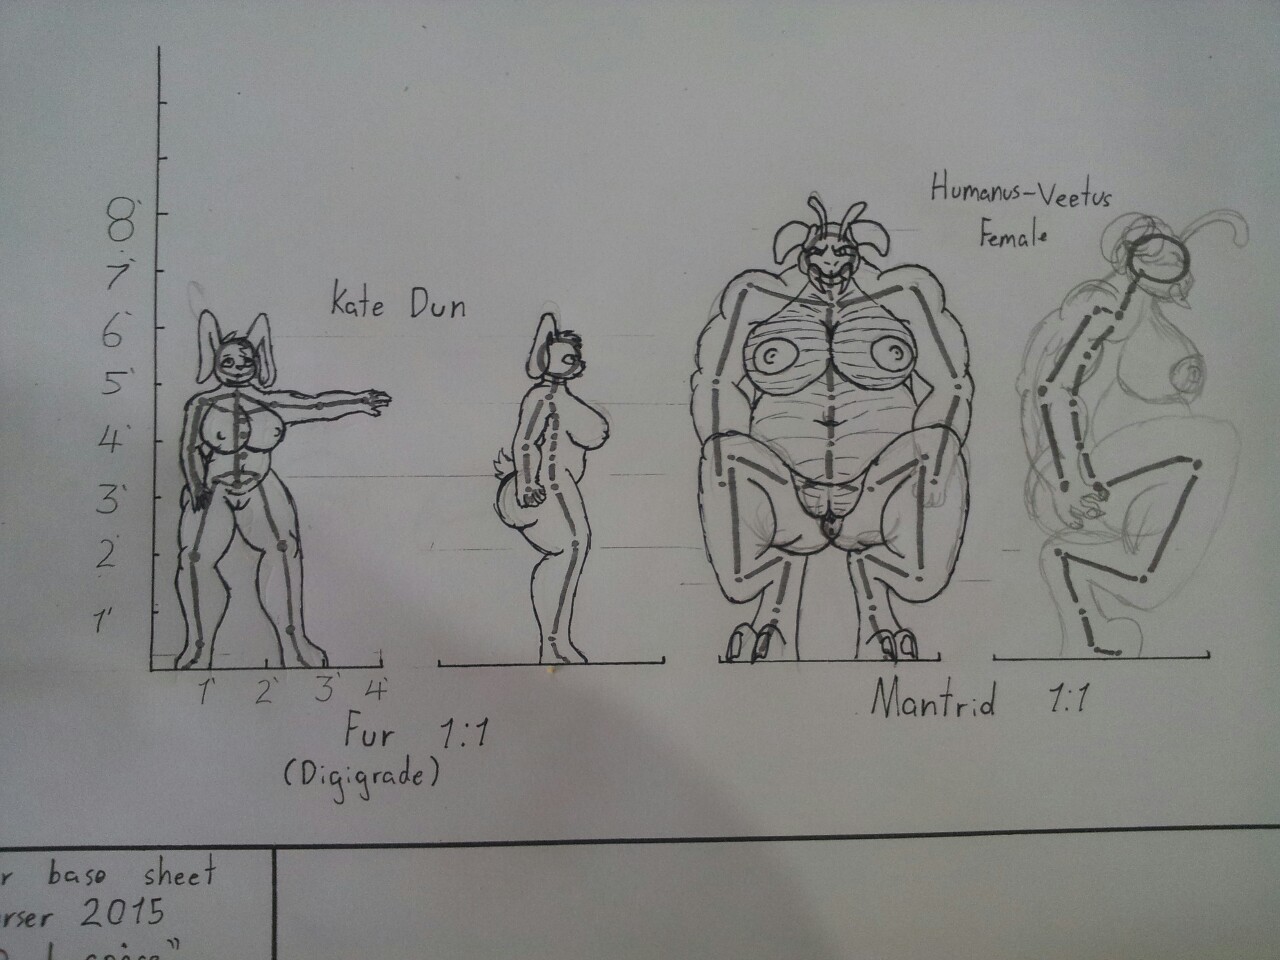 8'
7'
6'
5'
4'
3'
2'
1'
1' 2' 3' 4'
Kate Dun
Humanus-Veetus
Female
Fur 1:1
(Digigrade)
Mantrid 1:1
base sheet
2015